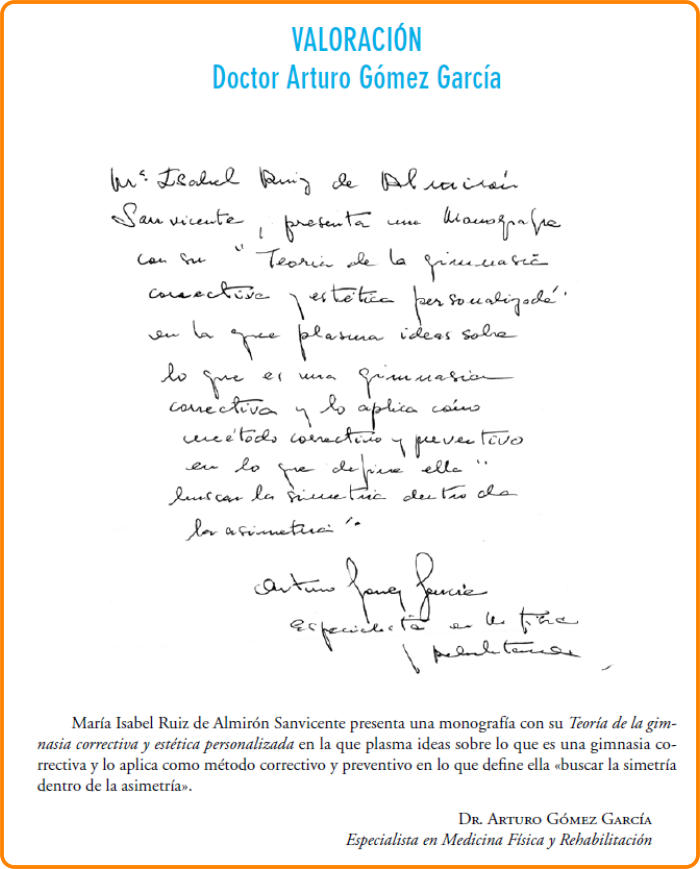 VALORACIÓN
Doctor Arturo Gómez García
Mª Isabel Ruiz de Almirón
Sanvicente, presenta una Monografia
con su "Teoria de la gimnasia
correctiva y estética personalizada"
en la que plasma ideas sobre
lo que es una gimnasia
correctiva y lo aplica como
método correctivo y preventivo
en lo que define ella "
buscar la simetria dentro de
la asimetria".
Arturo Gomez Garcia
Especialista en M. Fisica
y Rehabilitacion
María Isabel Ruiz de Almirón Sanvicente presenta una monografía con su Teoría de la gim-
nasia correctiva y estética personalizada en la que plasma ideas sobre lo que es una gimnasia co-
rrectiva y lo aplica como método correctivo y preventivo en lo que define ella «buscar la simetría
dentro de la asimetría».
Dr. Arturo Gómez García
Especialista en Medicina Física y Rehabilitación